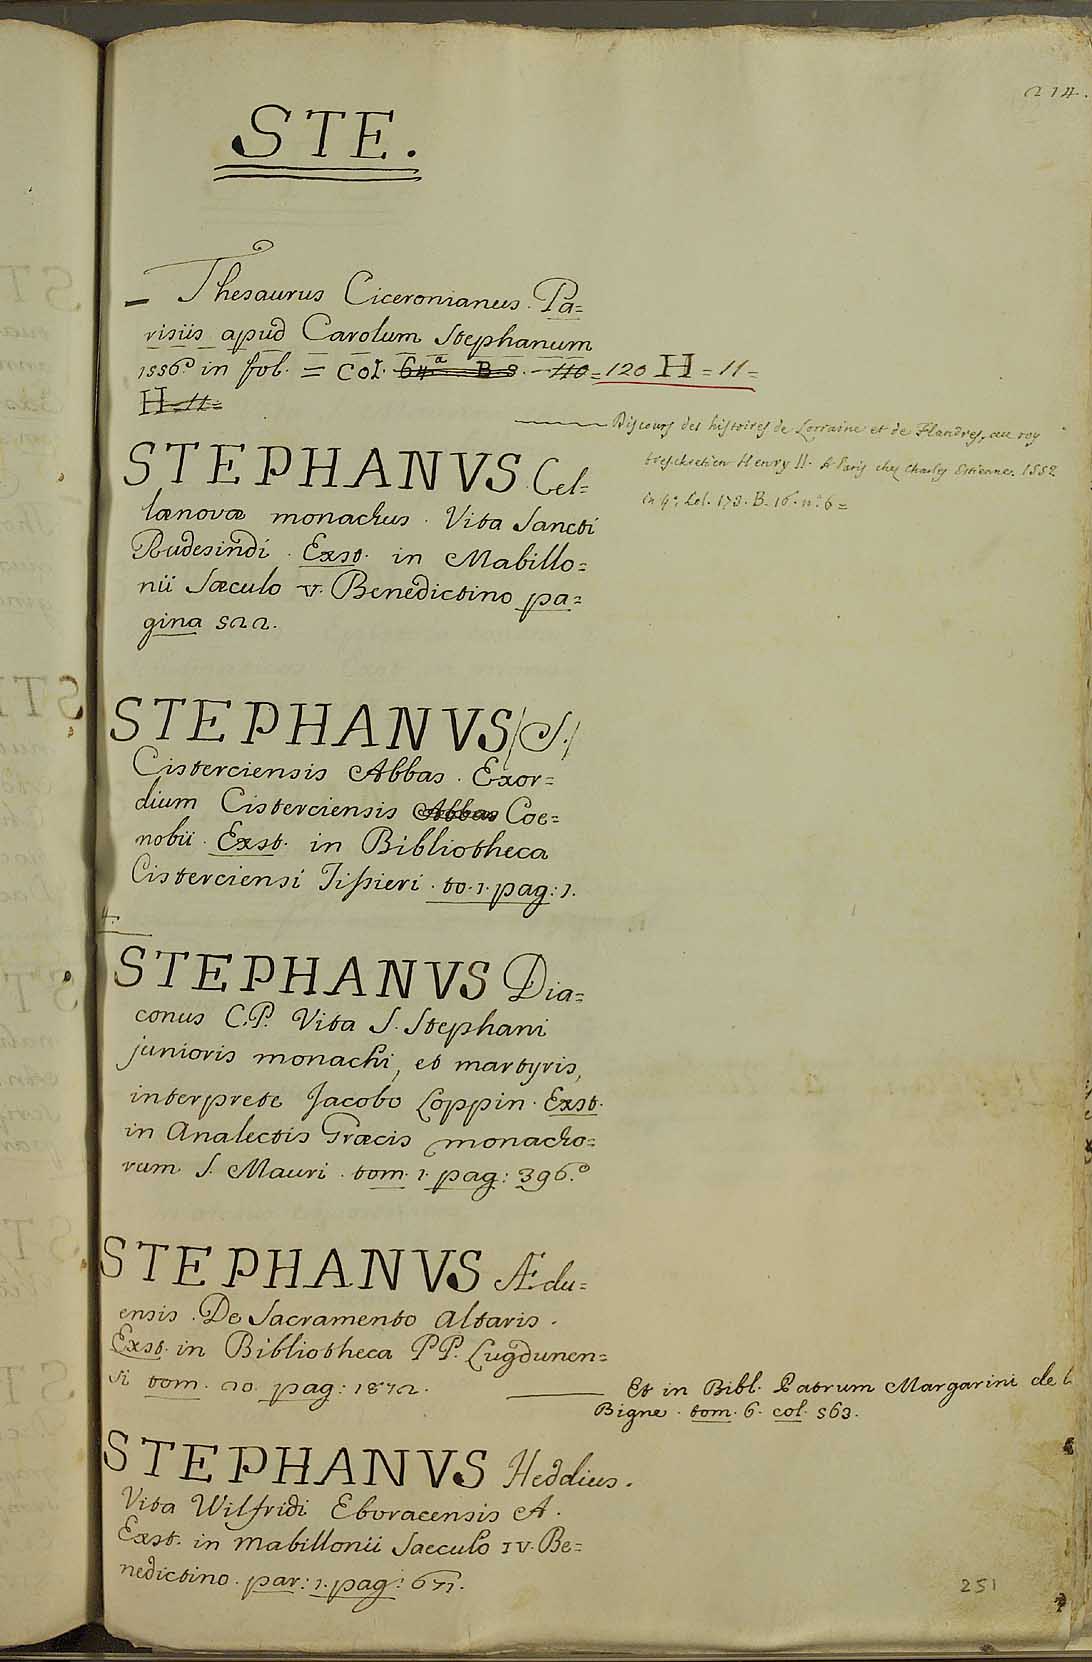 214.
STE.
— Thesaurus Ciceronianus. Pa=
risiis apud Carolum Stephanum
1556. in fol. = Col. 64ª B 8. 110 = 120 H = 11 =
H = 11 =
Discours des histoires de Lorraine et de Flandres, au roy
treschretien Henry II. A Paris chez Charles Estienne. 1552
in 4º. Col. 178. B. 16. nº 6 =
STEPHANVS Cel=
lænovæ monachus. Vita Sancti
Rudesindi. Exst. in Mabillo=
nii Sæculo v. Benedictino pa=
gina 522.
STEPHANVS (S.)
Cisterciensis Abbas. Exor=
dium Cisterciensis Abbas Coe=
nobii. Exst. in Bibliotheca
Cisterciensi Tissieri. to. 1. pag: 1.
4.
STEPHANVS Dia=
conus C.P. Vita S. Stephani
junioris monachi, et martyris,
interprete Jacobo Loppin. Exst.
in Analectis Græcis monacho=
rum S. Mauri. tom. 1. pag: 396.
STEPHANVS Ædu=
ensis. De Sacramento Altaris.
Exst. in Bibliotheca PP. Lugdunen=
si tom. 20. pag: 1872.
Et in Bibl. Patrum Margarini de l
Bigne. tom. 6. col. 563.
STEPHANVS Heddius.
Vita Wilfridi Eboracensis A.
Exst. in mabillonii Saeculo IV. Be=
nedictino. par: 1. pag: 671.
251